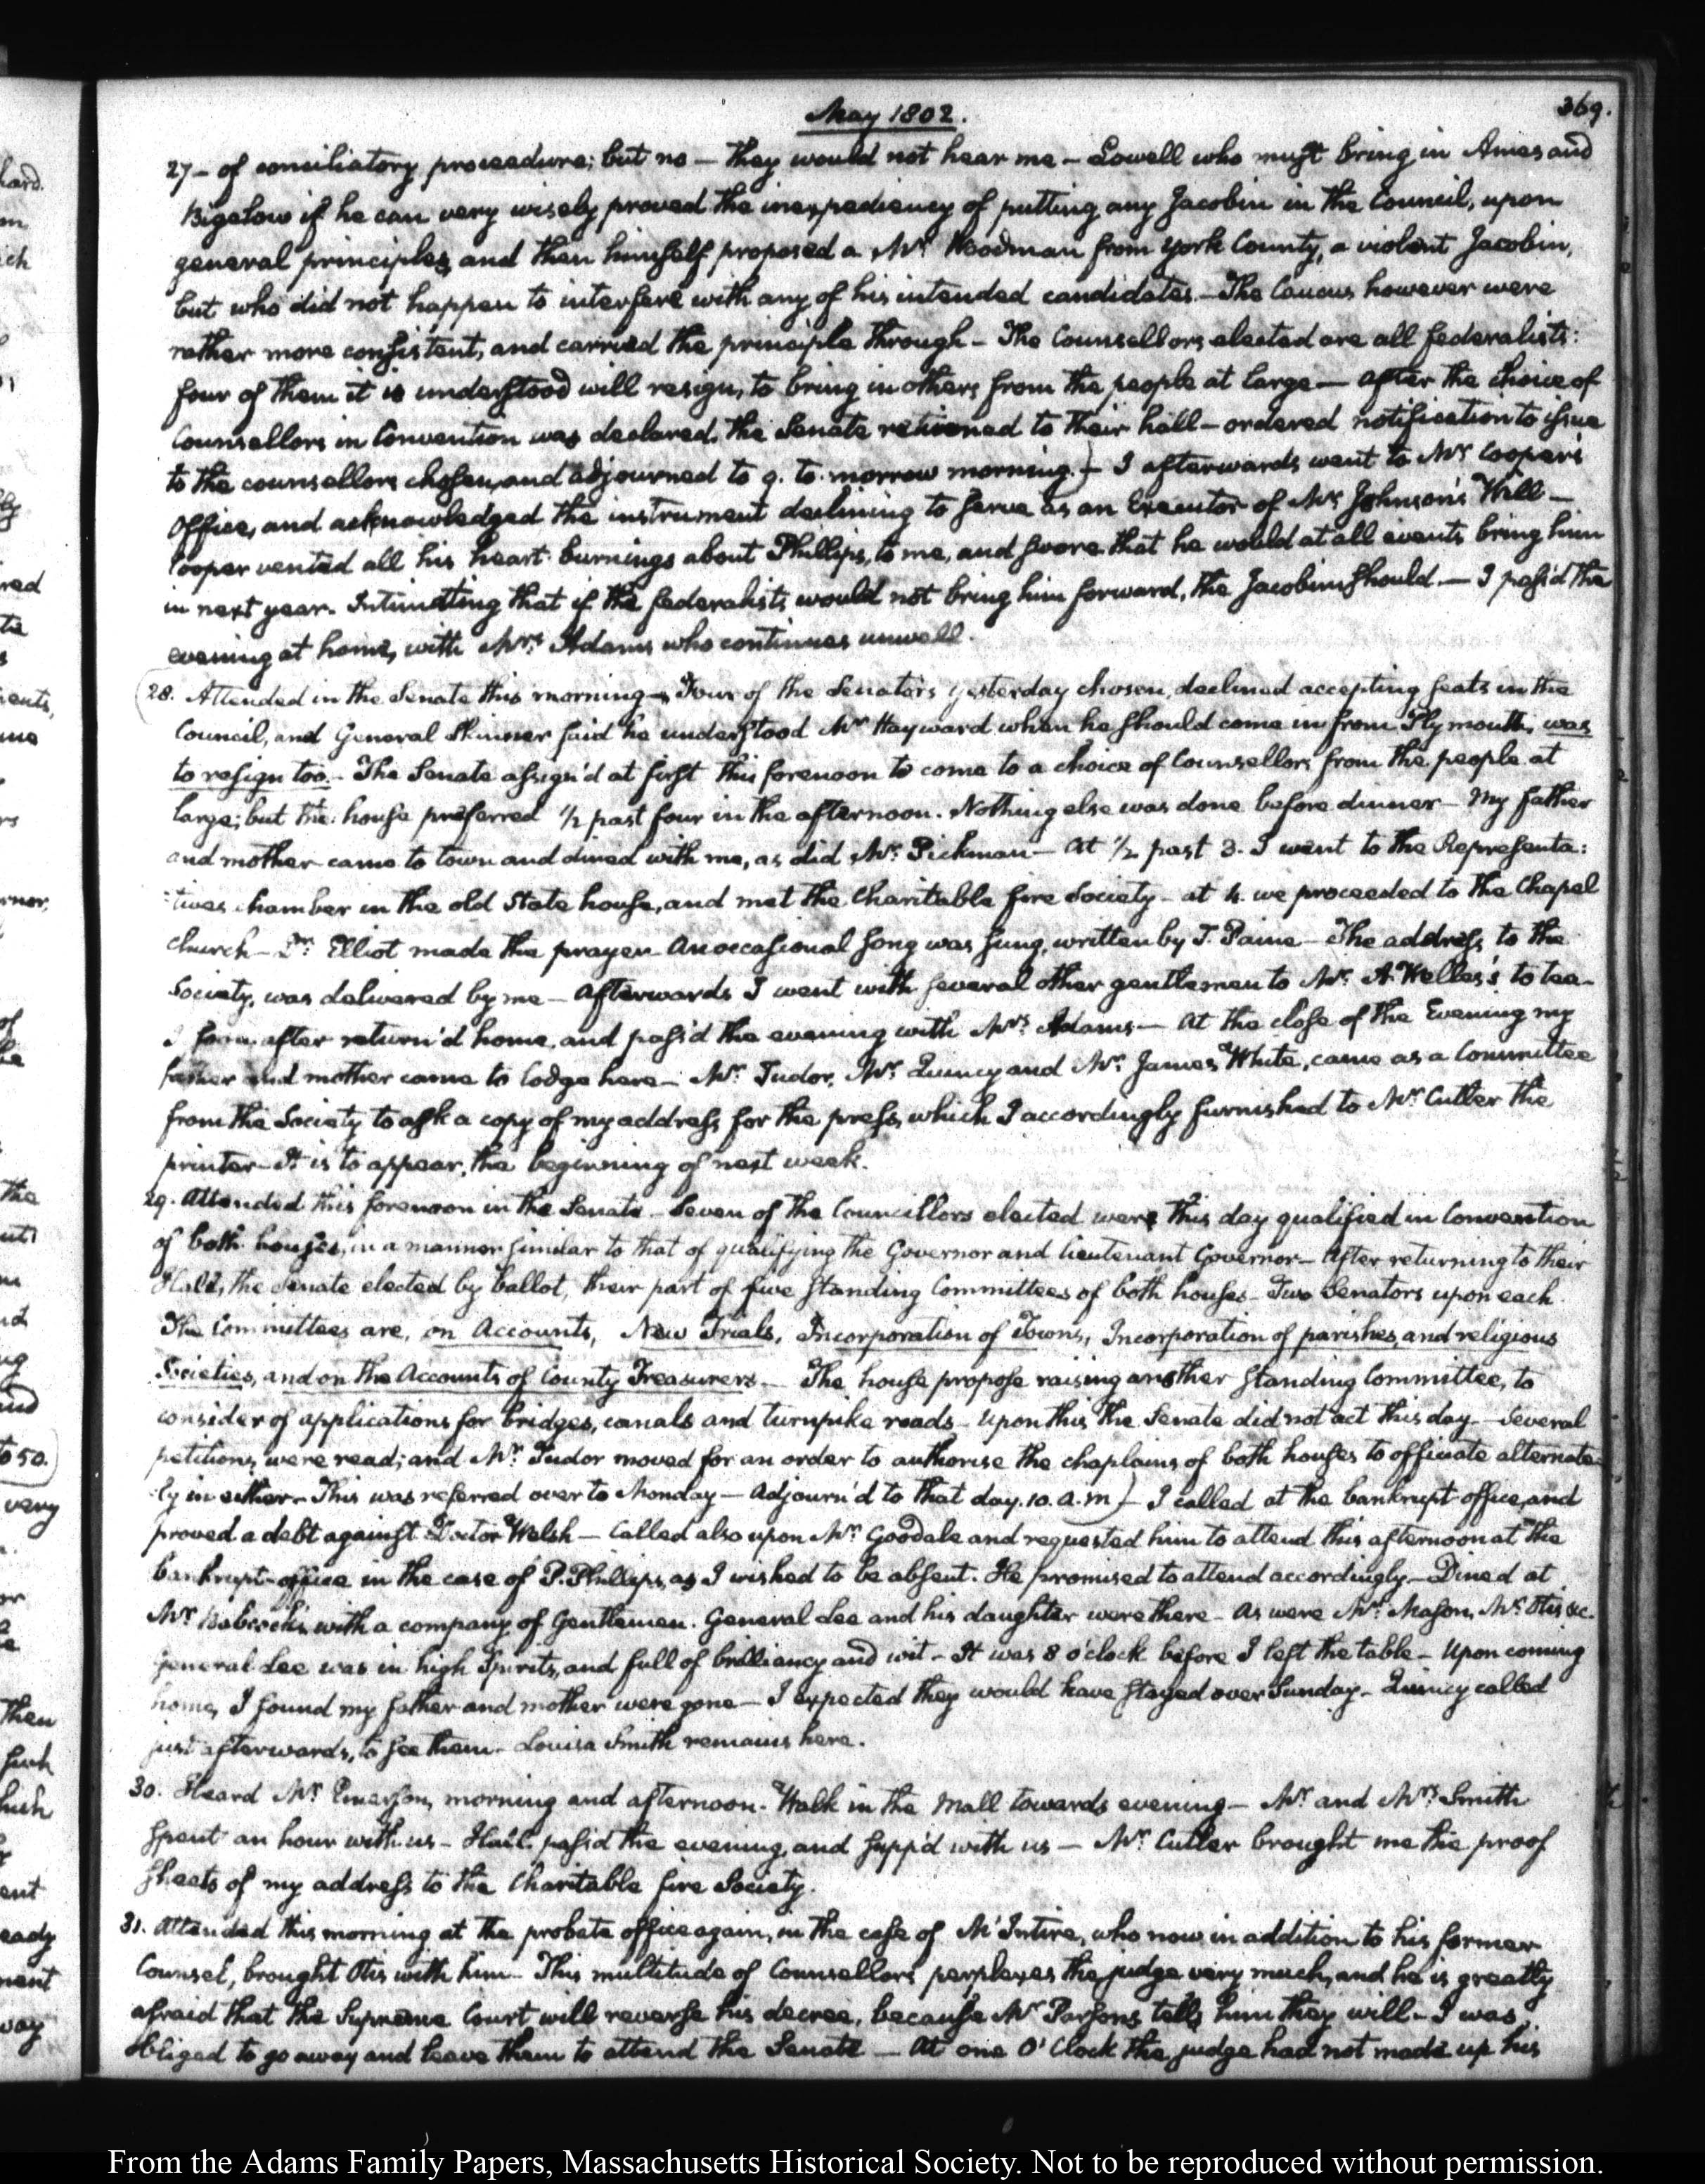 May 1802.
369.
27- of conciliatory proceedure; but no — they would not hear me — Lowell who must bring in Ames and
Bigelow if he can very wisely proved the inexpediency of putting any Jacobin in the Council, upon
general principles, and then himself proposed a Mr. Woodman from York County, a violent Jacobin,
but who did not happen to interfere with any of his intended candidates — The Caucus however were
rather more consistent, and carried the principle through — The Counsellors elected are all federalists:
four of them it is understood will resign, to bring in others from the people at large — After the choice of
Counsellors in Convention was declared, the Senate returned to their hall — ordered notification to issue
to the counsellors chosen, and adjourned to 9. to-morrow morning.) — I afterwards went to Mr. Cooper's
Office, and acknowledged the instrument declining to serve as an Executor of Mr. Johnson's Will —
Cooper vented all his heart-burnings about Phillips, to me, and swore that he would at all events bring him
in next year. Intimating that if the federalists would not bring him forward, the Jacobins should. — I pass'd the
evening at home, with Mrs. Adams who continues unwell.
(28. Attended in the Senate this morning — Four of the Senators yesterday chosen, declined accepting seats in the
Council, and General Skinner said he understood Mr. Hayward when he should come in from Plymouth, was
to resign too. — The Senate assign'd at first this forenoon to come to a choice of Counsellors from the people at
large; but the house preferred ½ past four in the afternoon. Nothing else was done before dinner — My father
and mother came to town and dined with me, as did Mr. Pickman — At ½ past 3. I went to the Representa:
:tives chamber in the old State house, and met the Charitable fire Society — at 4. we proceeded to the Chapel
Church — Dr. Elliot made the prayer. An occasional song was sung, written by T. Paine — The address to the
Society, was delivered by me — Afterwards I went with several other gentlemen to Mr. A. Welles's to tea —
I soon after return'd home, and pass'd the evening with Mrs. Adams — At the close of the Evening my
father and mother came to lodge here — Mr. Tudor, Mr. Quincy and Mr. James White, came as a Committee
from the Society to ask a copy of my address for the press, which I accordingly furnished to Mr. Cutler the
printer — It is to appear, the beginning of next week.
29. Attended this forenoon in the Senate — Seven of the Councillors elected were this day qualified in Convention
of both houses, in a manner similar to that of qualifying the Governor and lieutenant Governor — After returning to their
Hall, the Senate elected by ballot, their part of five standing Committees of both houses — Two Senators upon each.
The Committees are, on Accounts, New Trials, Incorporation of Towns, Incorporation of parishes, and religious
Societies, and on the Accounts of County Treasurers — The house propose raising another standing Committee, to
consider of applications for bridges, canals and turnpike roads — Upon this the Senate did not act this day — Several
petitions were read; and Mr. Tudor moved for an order to authorise the chaplains of both houses to officiate alternate
:ly in either — This was referred over to Monday — Adjourn'd to that day. 10. a.m) — I called at the bankrupt office, and
proved a debt against Doctor Welsh — Called also upon Mr. Goodale and requested him to attend this afternoon at the
bankrupt-office in the case of P. Phillips, as I wished to be absent. He promised to attend accordingly — Dined at
Mr. Babcock's with a company of Gentlemen. General Lee and his daughter were there — As were Mr. Mason, Mr. Otis &c.
General Lee was in high Spirits, and full of brilliancy and wit — It was 8 o'clock before I left the table — Upon coming
home, I found my father and mother were gone — I expected they would have stayed over Sunday — Quincy called
just afterwards, to see them — Louisa Smith remains here.
30. Heard Mr. Emerson, morning and afternoon. Walk in the Mall towards evening — Mr. and Mrs. Smith
spent an hour with us — Hall pass'd the evening, and supp'd with us — Mr. Cutler brought me the proof
sheets of my address to the Charitable fire Society.
31. Attended this morning at the probate office again, in the case of M'Intire, who now in addition to his former
Counsel, brought Otis with him — This multitude of Counsellors perplexes the judge very much, and he is greatly
afraid that the Supreme Court will reverse his decree, because Mr. Parsons tells him they will — I was
obliged to go away and leave them to attend the Senate — At one O'Clock the judge had not made up his
From the Adams Family Papers, Massachusetts Historical Society. Not to be reproduced without permission.